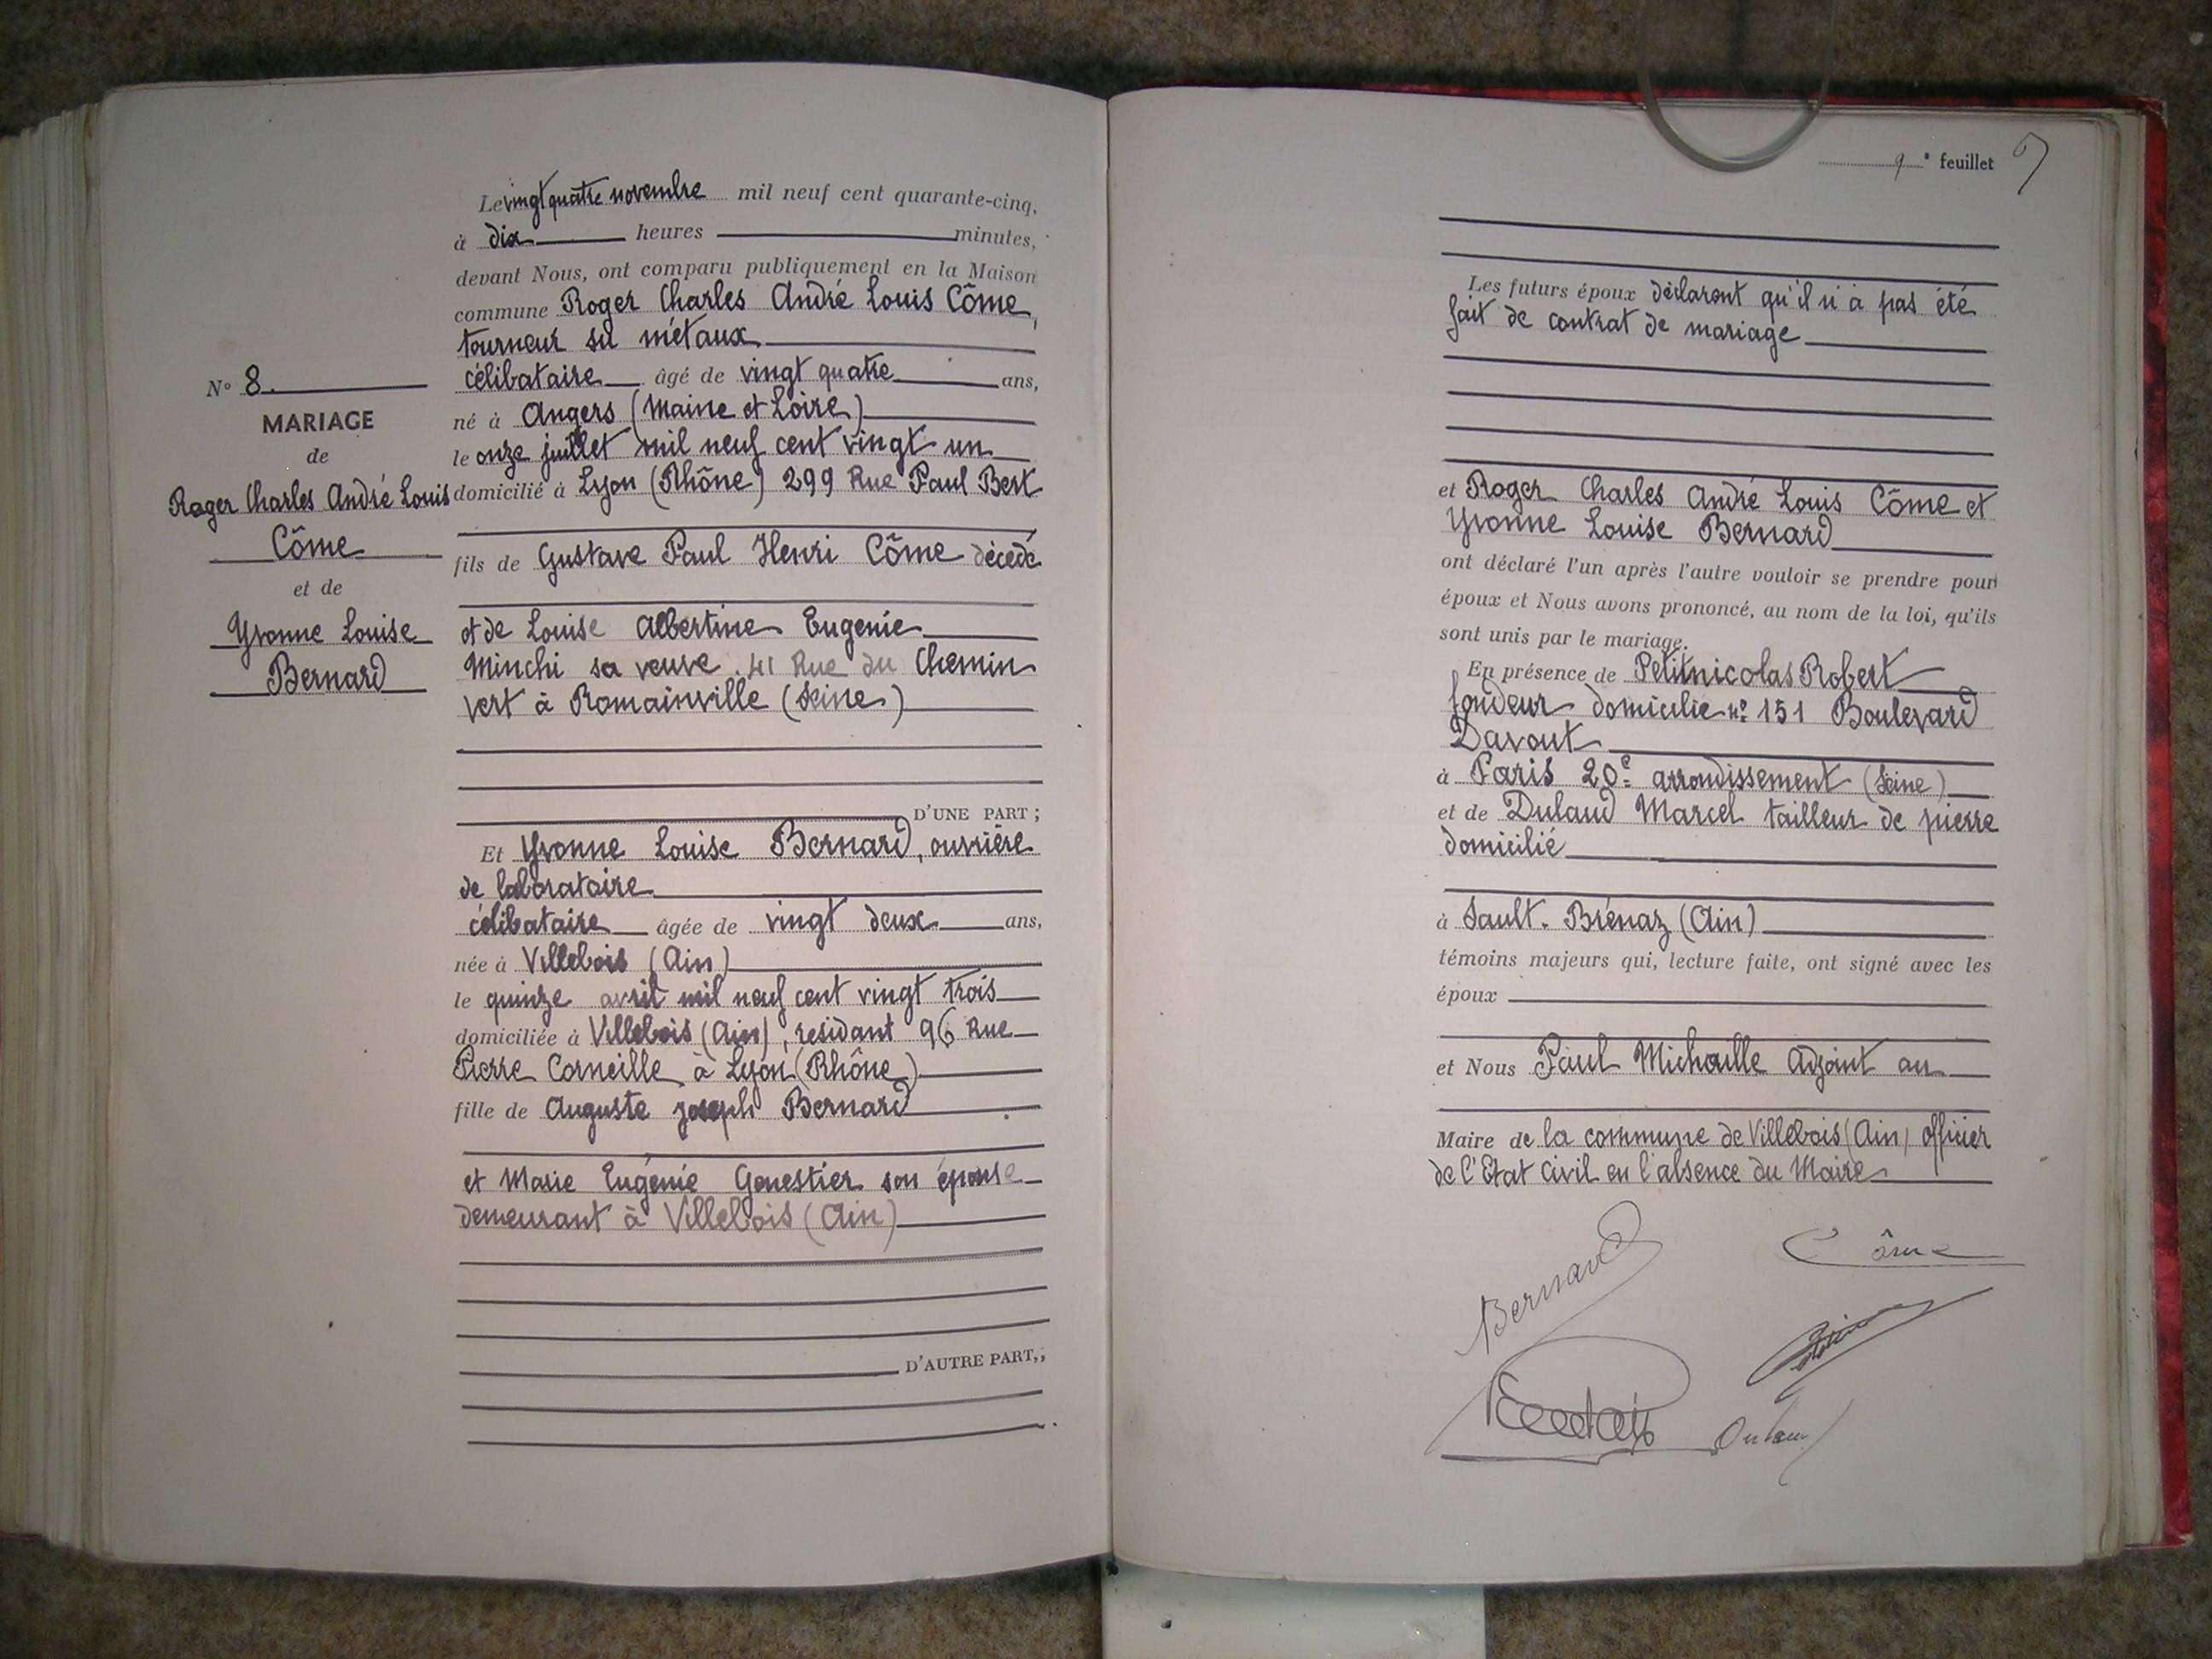 N° 8.
MARIAGE
de
Roger Charles André Louis
Côme
et de
Yvonne Louise
Bernard
Le vingt quatre novembre mil neuf cent quarante-cinq,
à dix heures minutes,
devant Nous, ont comparu publiquement en la Maison
commune Roger Charles André Louis Côme,
tourneur su métaux
célibataire âgé de vingt quatre ans,
né à Angers (Maine et Loire)
le onze juillet mil neuf cent vingt un
domicilié à Lyon (Rhône) 299 Rue Paul Bert
fils de Gustave Paul Henri Côme décédé
et de Louise Albertine Eugenie
Minchi sa veuve 41 Rue du Chemin
vert à Romainville (Seine)
D'UNE PART ;
Et Yvonne Louise Bernard, ouvrière
de laboratoire
célibataire âgée de vingt deux ans,
née à Villebois (Ain)
le quinze avril mil neuf cent vingt trois
domiciliée à Villebois (Ain), residant 96 Rue
Pierre Corneille à Lyon (Rhône)
fille de Auguste joseph Bernard
et Marie Eugénie Genestier son épouse
demeurant à Villebois (Ain)
D'AUTRE PART,;
9e feuillet 9
Les futurs époux déclarent qu'il n'a pas été
fait de contrat de mariage
et Roger Charles André Louis Côme et
Yvonne Louise Bernard
ont déclaré l'un après l'autre vouloir se prendre pour
époux et Nous avons prononcé, au nom de la loi, qu'ils
sont unis par le mariage.
En présence de Petitnicolas Robert
fondeur domicilié n° 151 Boulevard
Davout
à Paris 20e arrondissement (Seine)
et de Dulaud Marcel tailleur de pierre
domicilié
à Sault-Brénaz (Ain)
témoins majeurs qui, lecture faite, ont signé avec les
époux
et Nous Paul Michaille Adjoint au
Maire de la commune de Villebois (Ain) officier
de l'Etat Civil en l'absence du Maire
Bernard
Côme
Dulaud